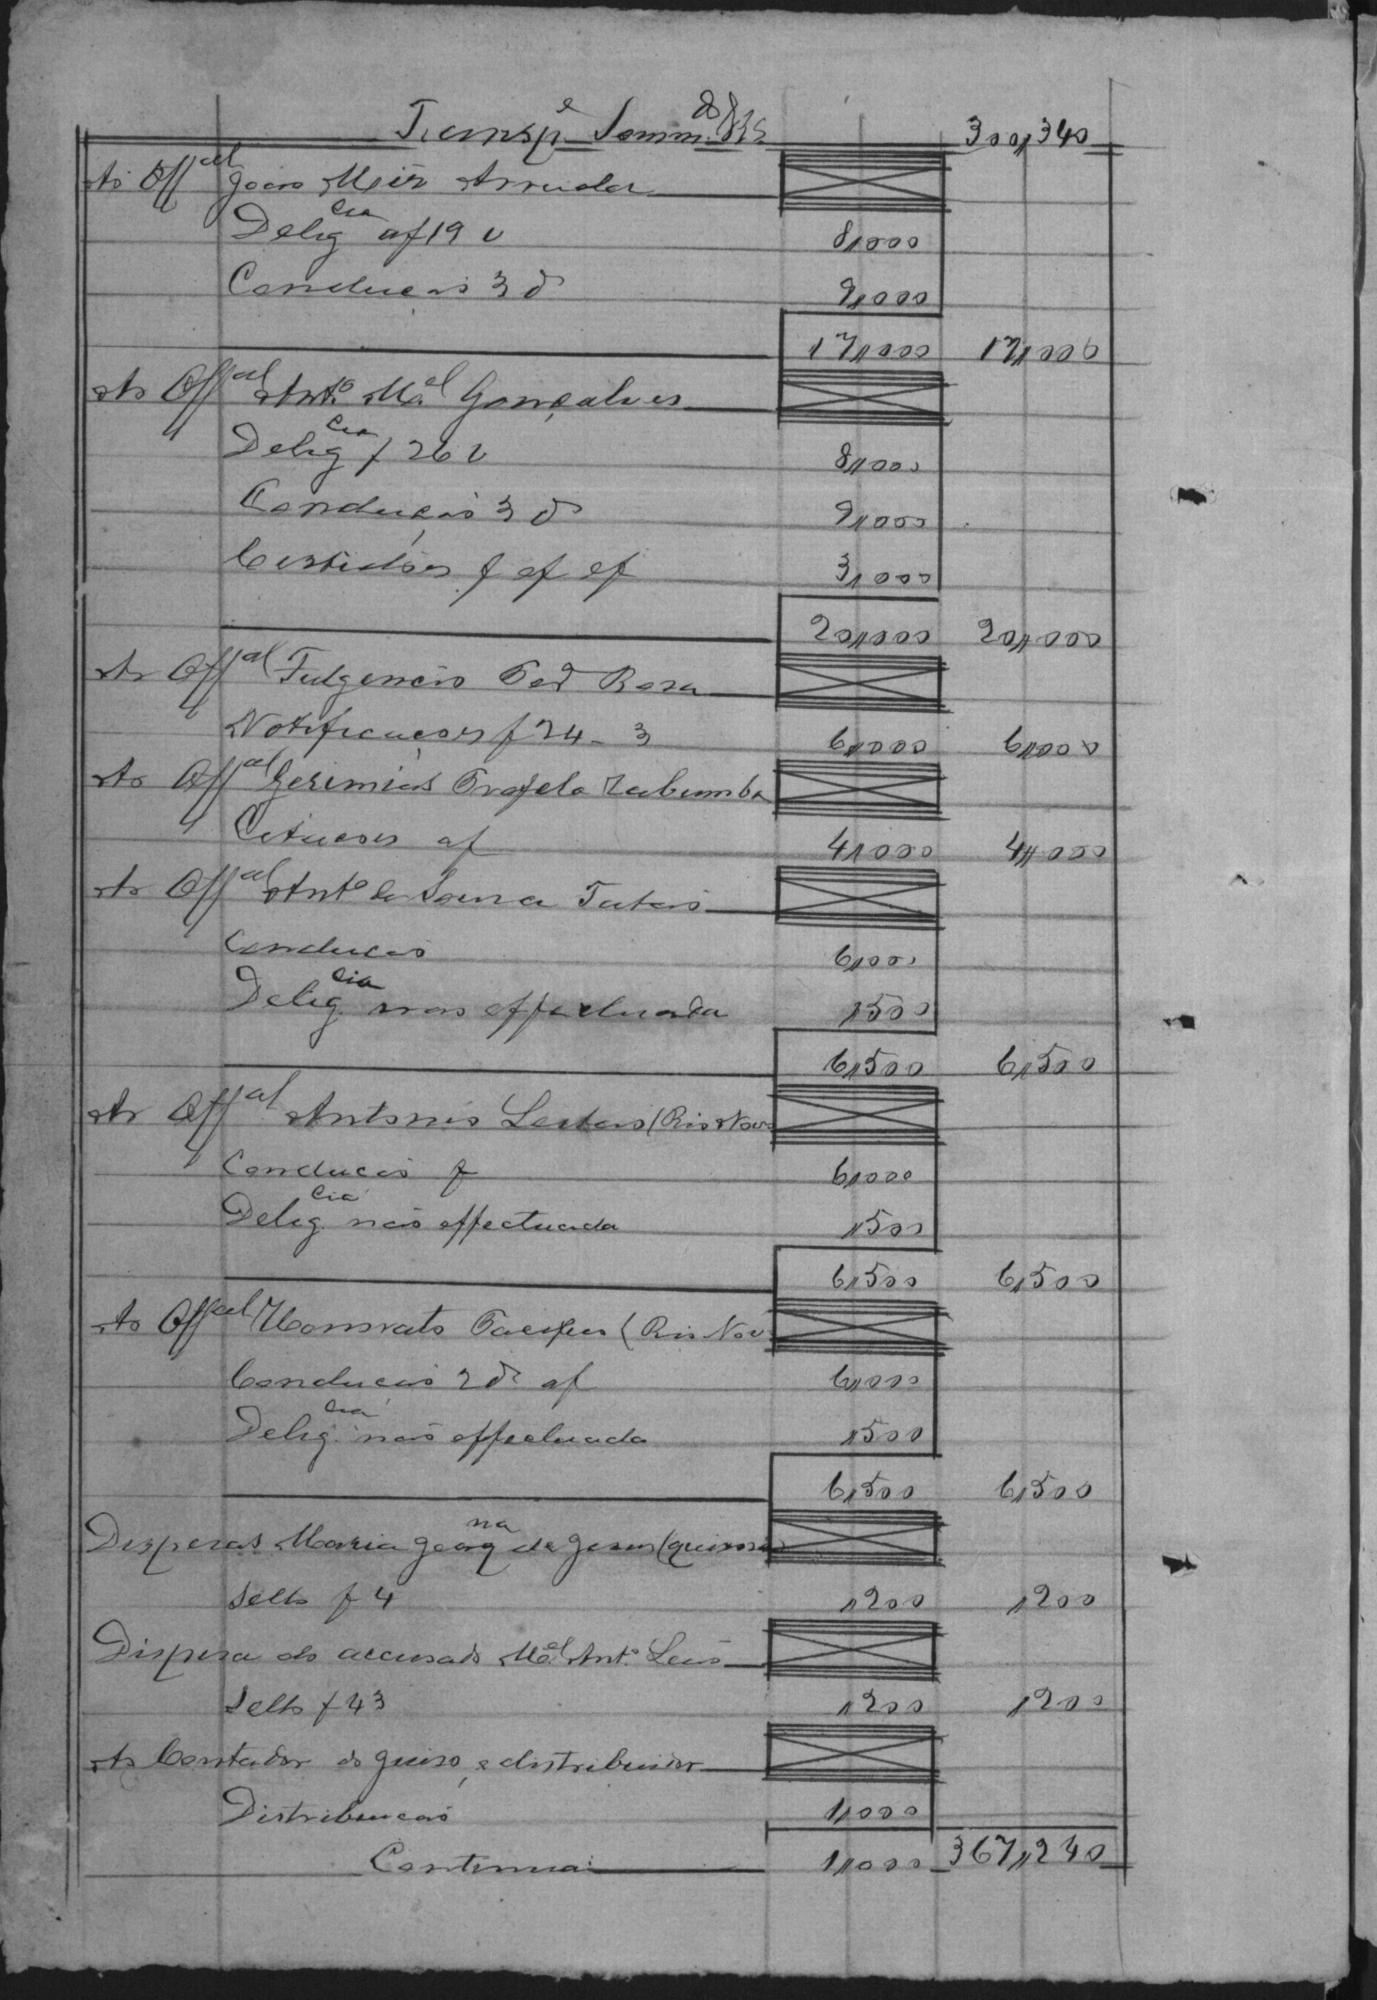 Transp.e Somm. 300,340
Ao Off.al João Arruda
Delig.cia af 19 v 8,000
Conducção 3 d 9,000
17,000 17,000
Ao Off.al Ant.o M.el Gonçalves
Delig.cia f 26 v 8,000
Conducção 3 d 9,000
Certidões f ef ef 3,000
20,000 20,000
Ao Off.al Fulgencio Roza
Notificações f 24 - 3 6,000 6,000
Ao Off.al Geremias Zabumba
Citações af 4,000 4,000
Ao Off.al Ant.o de Souza
Conducção 6,000
Delig.cia não effectuada ,500
6,500 6,500
Ao Off.al Antonio (Rio Novo
Conducção f 6,000
Delig.cia não effectuada ,500
6,500 6,500
Ao Off.al Honorato (Rio Nov
Conducção 2 d af 6,000
Delig.cia não effectuada ,500
6,500 6,500
Despesas Maria Joaq.na de Jesus
Sello f 4 ,200 ,200
Dispesa do accusado M.el Ant.o
Sello f 43 ,200 ,200
Ao Contador do juiso, e distribuidor
Distribuição 1,000
Continua 1,000 367,240